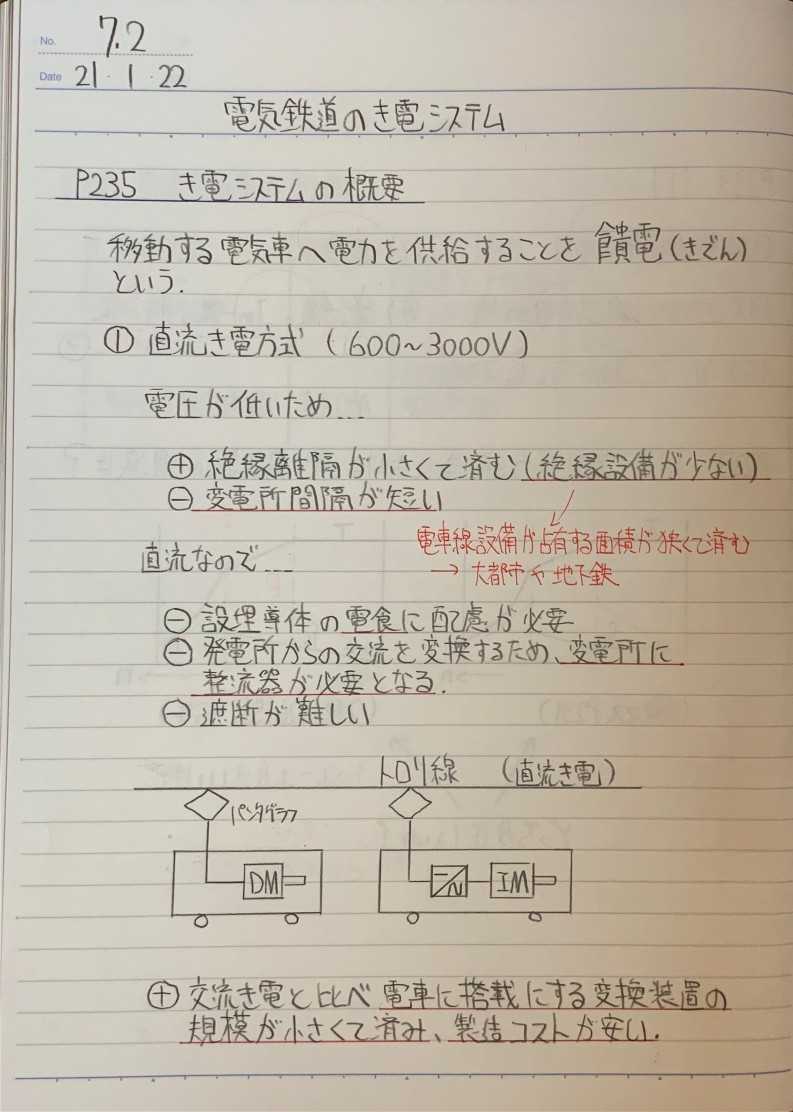 No. 7.2
Date 21・1・22
電気鉄道のき電システム
P235 き電システムの概要
移動する電気車へ電力を供給することを 饋電(きでん)
という.
① 直流き電方式 (600～3000V)
電圧が低いため...
⊕ 絶縁離隔が小さくて済む(絶縁設備が少ない)
⊖ 変電所間隔が短い
電車線設備が占有する面積が狭くて済む
→ 大都市や地下鉄
直流なので...
⊖ 設埋導体の電食に配慮が必要
⊖ 発電所からの交流を変換するため、変電所に
整流器が必要となる.
⊖ 遮断が難しい
トロリ線 (直流き電)
パンタグラフ
DM
IM
⊕ 交流き電と比べ 電車に搭載にする変換装置の
規模が小さくて済み、製造コストが安い.